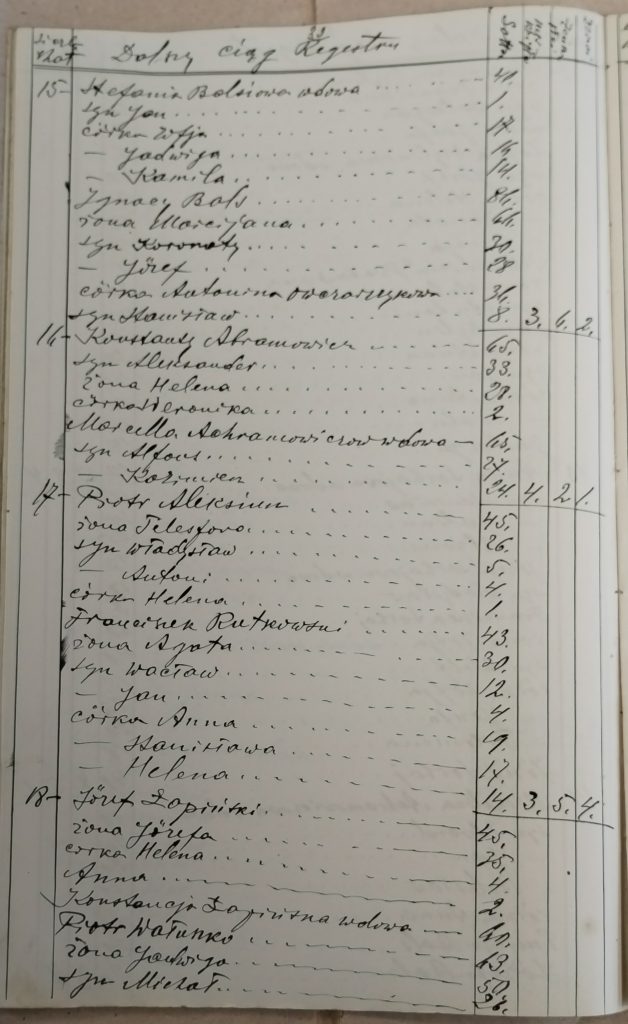 33
Dalszy ciąg Registru
15 - Stefania Balsiowa wdowa 41.
syn Jan 1.
córka Zofja 17.
- Jadwiga
- Kamila 14.
Ignacy Bals
żona Marcijana
syn 30.
- Józef 28
córka Antonina
syn Stanisław 8. 3. 6. 2.
16 - Konstanty Abramowicz 65.
syn Aleksander 33.
żona Helena
córka Weronika 2.
Marcella wdowa - 65.
syn Alfons 27.
- Kazimierz 24. 4. 2 1.
17 - Piotr Aleksiun 45.
żona Telesfora 26.
syn Władysław 5.
- Antoni 4.
córka Helena 1.
Franciszek Rutkowski 43.
żona Agata 30.
syn Wacław 12.
- Jan 4.
córka Anna 19.
- Stanisława 17.
- Helena 14. 3. 5. 4.
18 - Józef Łapiński 45.
żona Józefa 35.
córka Helena 4.
Anna 2.
Konstancja Łapińska wdowa
Piotr Wałunko 63.
żona Jadwiga 50.
syn Michał